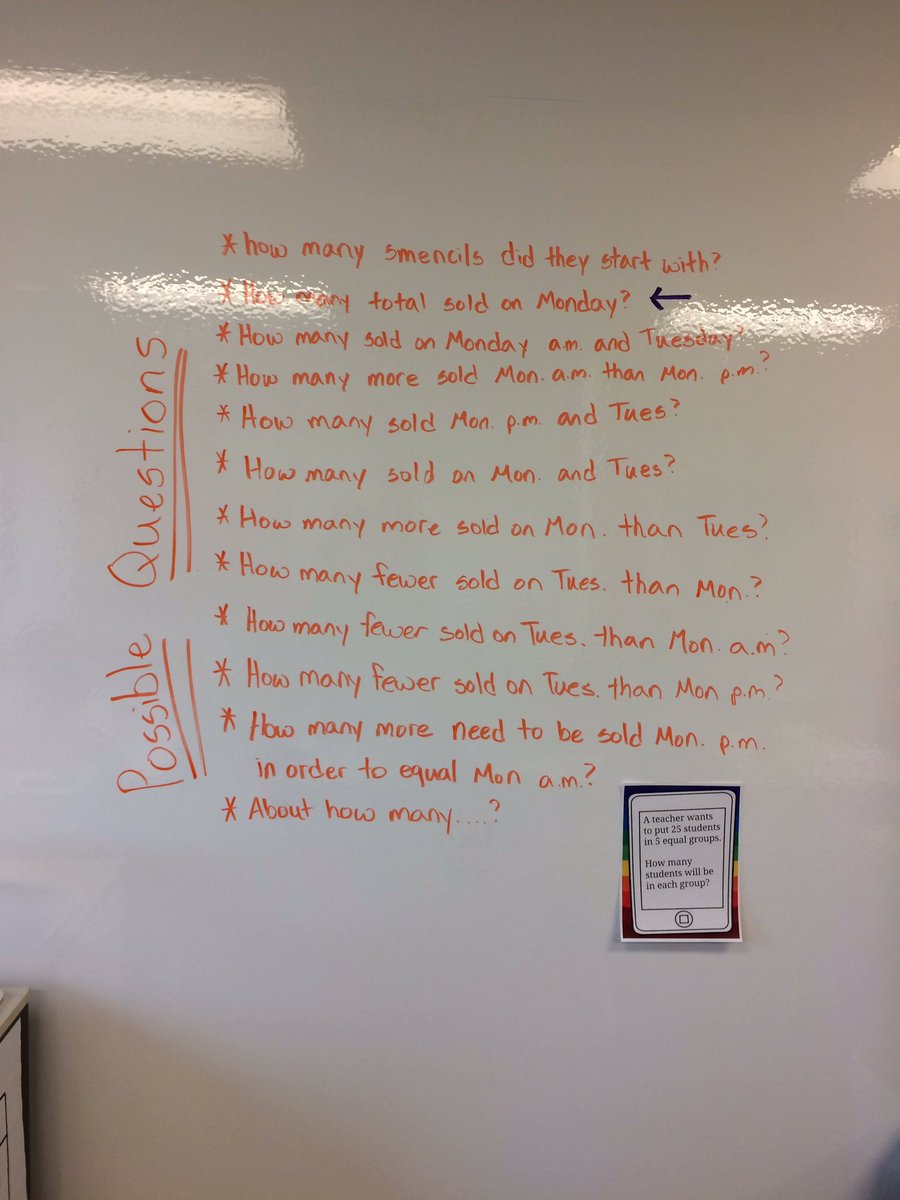 Possible Questions
* how many smencils did they start with?
* How many total sold on Monday? ←
* How many sold on Monday a.m. and Tuesday?
* How many more sold Mon. a.m. than Mon. p.m.?
* How many sold Mon. p.m. and Tues?
* How many sold on Mon. and Tues?
* How many more sold on Mon. than Tues?
* How many fewer sold on Tues. than Mon.?
* How many fewer sold on Tues. than Mon. a.m?
* How many fewer sold on Tues. than Mon p.m.?
* How many more need to be sold Mon. p.m.
in order to equal Mon a.m.?
* About how many....?
A teacher wants
to put 25 students
in 5 equal groups.
How many
students will be
in each group?